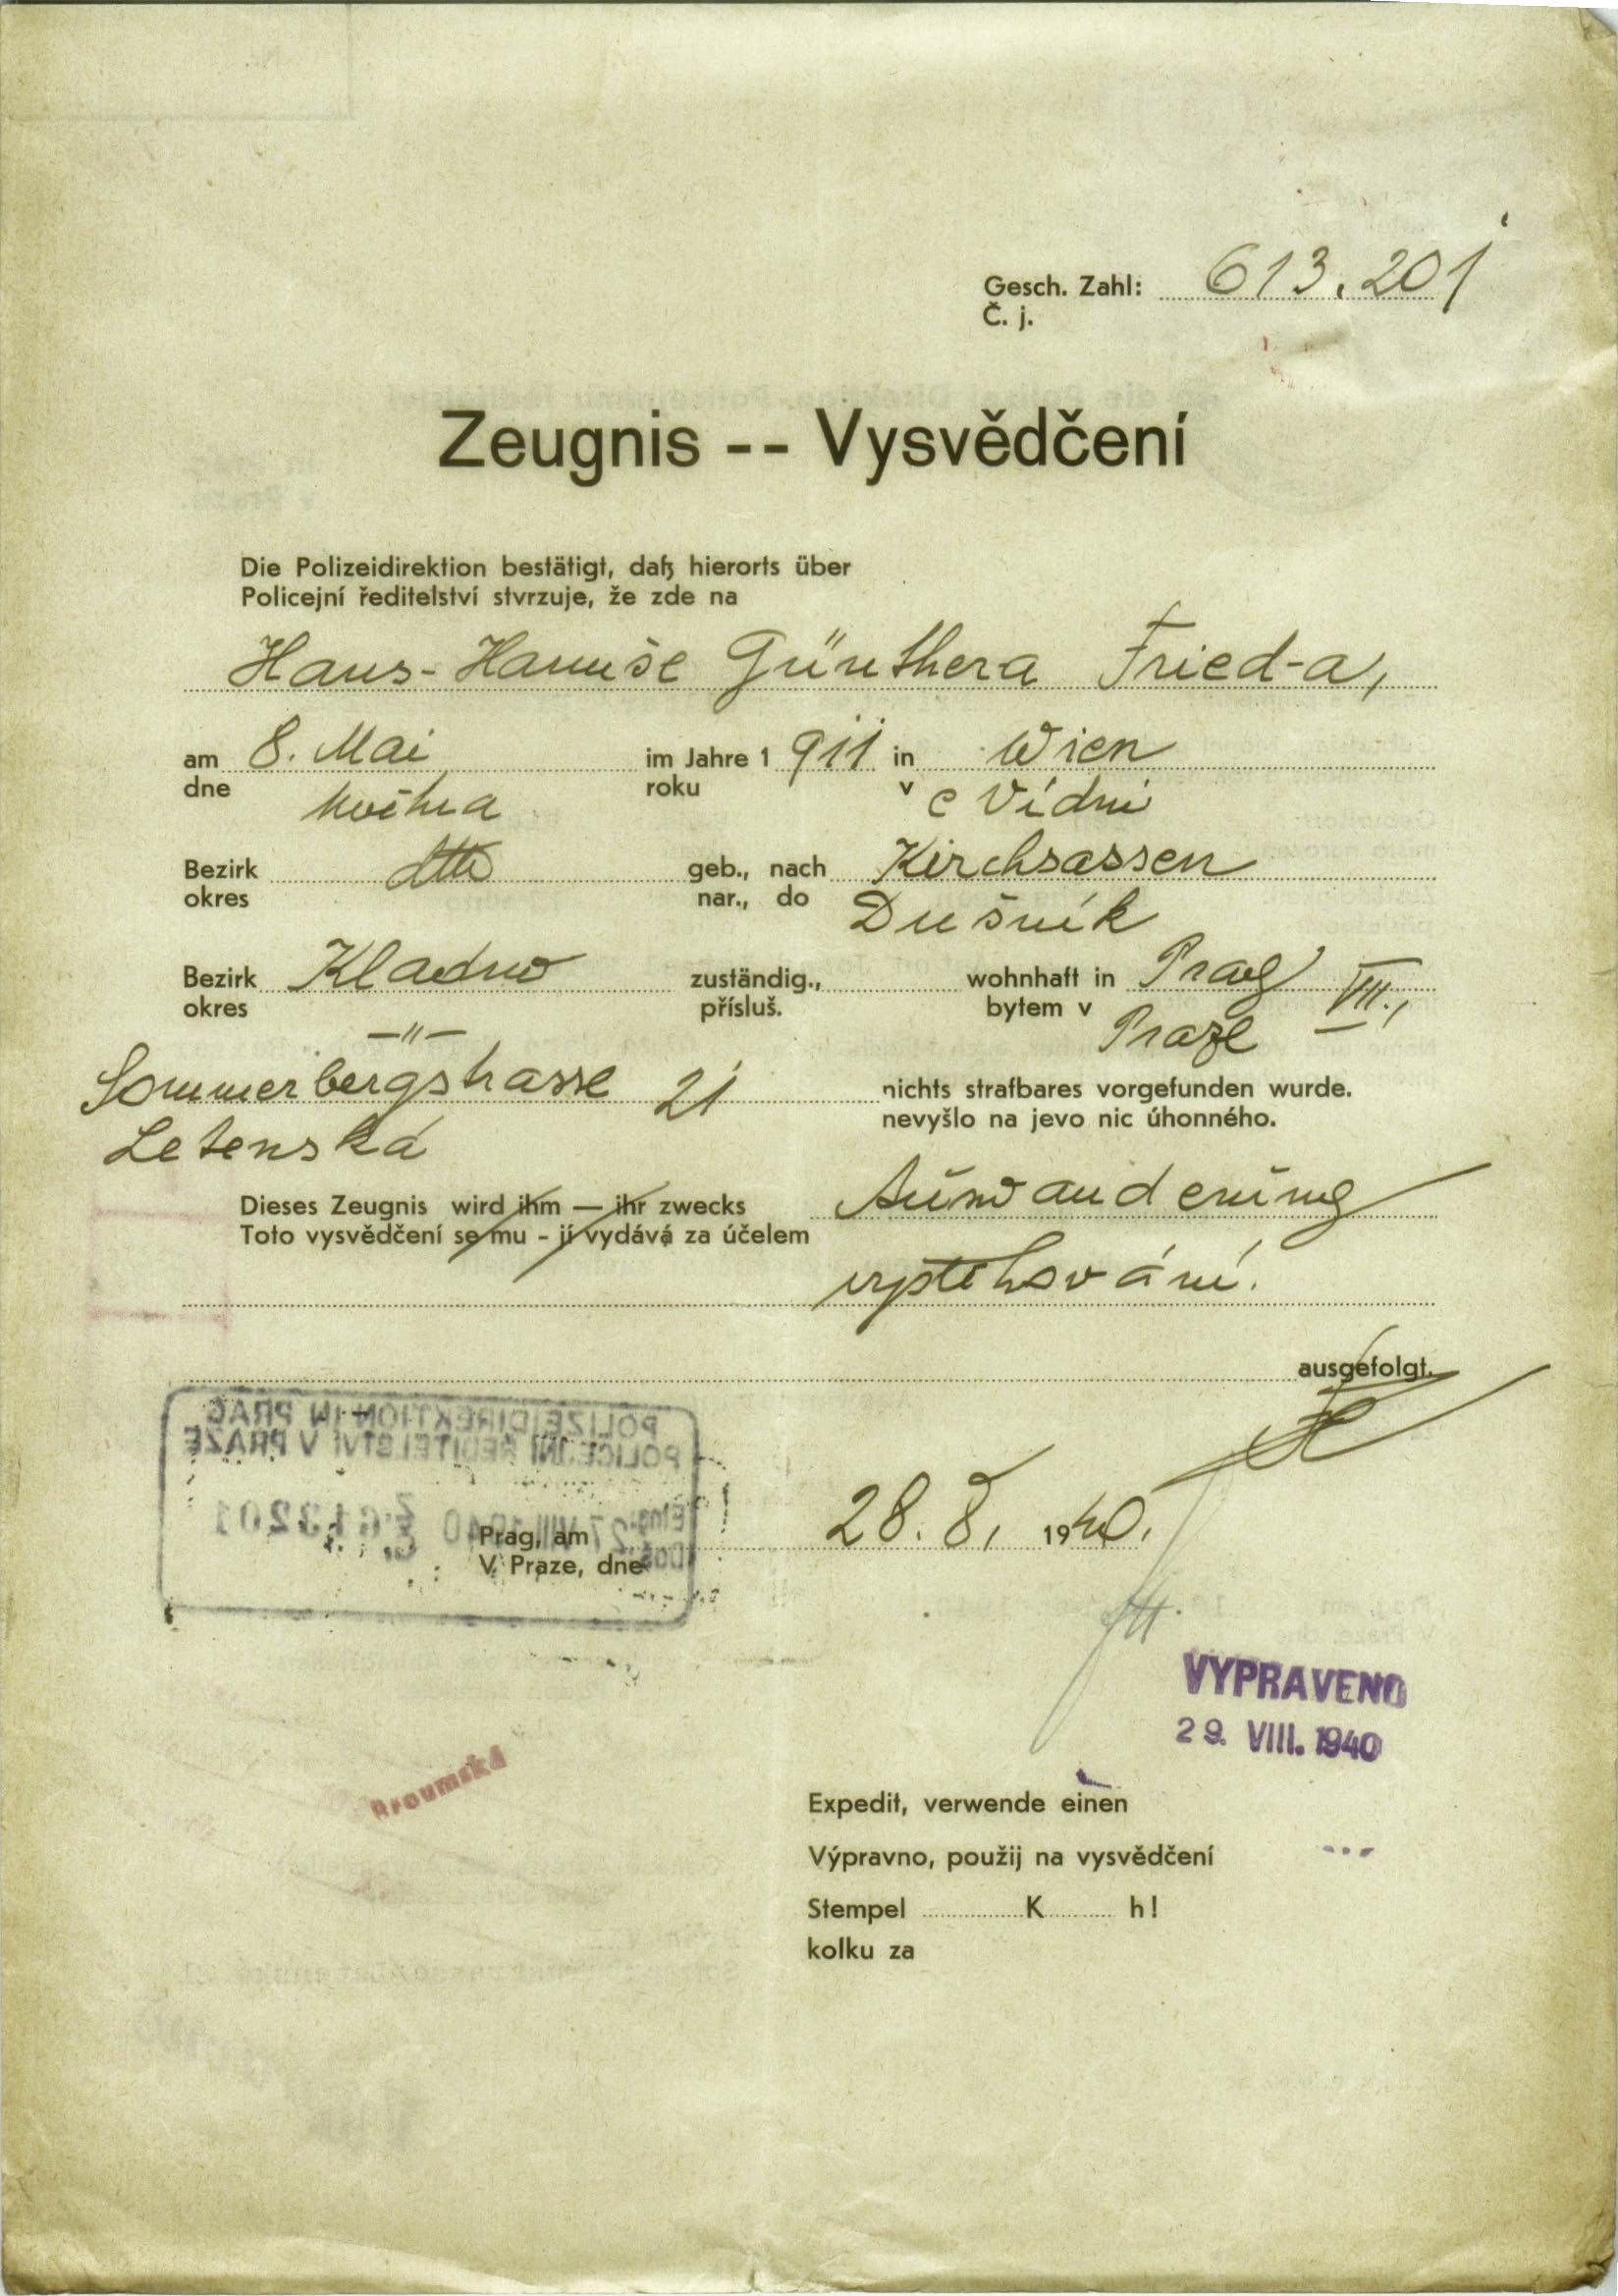 Gesch. Zahl: 613.201
Č. j.
Zeugnis -- Vysvědčení
Die Polizeidirektion bestätigt, daß hierorts über
Policejní ředitelství stvrzuje, že zde na
Hans-Hanuše Günthera Fried-a,
am 8. Mai im Jahre 1 911 in Wien
dne května roku v e Vídni
Bezirk dtto geb., nach Kirchsassen
okres nar., do Dušník
Bezirk Kladno zuständig., wohnhaft in Prag VII.,
okres -"- přísluš. bytem v Praze
Sommerbergstrasse 21 nichts strafbares vorgefunden wurde.
Letenská nevyšlo na jevo nic úhonného.
Dieses Zeugnis wird ihm — ihr zwecks Auswanderung
Toto vysvědčení se mu - jí vydává za účelem
vystěhování.
ausgefolgt.
POLIZEIDIREKTION IN PRAG
POLICEJNÍ ŘEDITELSTVÍ V PRAZE
Eing. 27 VIII 1940 Z 613201
Došlo Č.
Prag, am 28. 8. 1940.
V Praze, dne
VYPRAVENO
29. VIII. 1940
Broumská
Expedit, verwende einen
Výpravno, použij na vysvědčení
Stempel K h!
kolku za